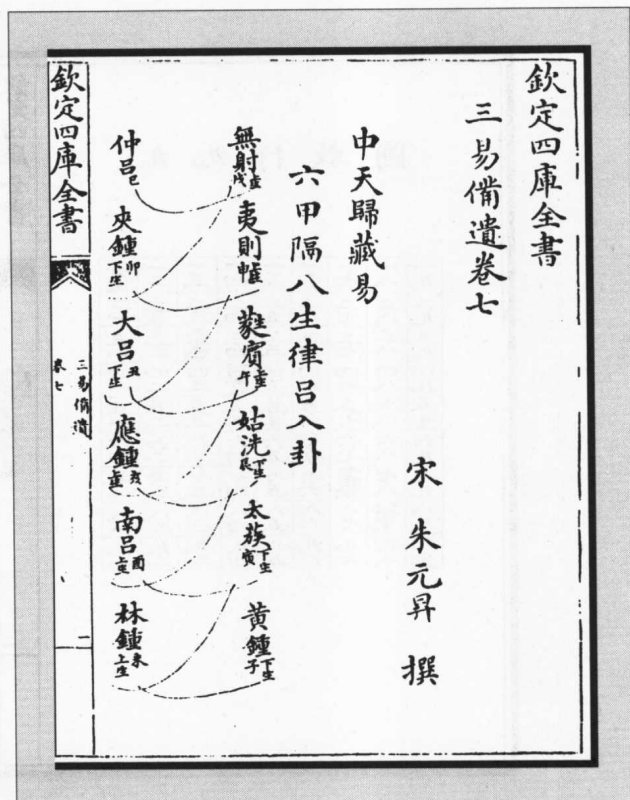 欽定四庫全書
三易備遺卷七
宋朱元昇撰
中天歸藏易
六甲隔八生律呂入卦
無射上生戌 夷則上生申 蕤賓上生午 姑洗下生辰 太蔟下生寅 黃鍾下生子
仲呂巳 夾鍾卯下生 大呂丑下生 應鍾亥上生 南呂酉上生 林鍾未上生
欽定四庫全書
三易備遺
卷七
二